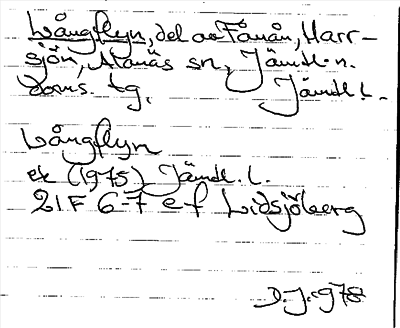 Långflyn, del av Fånån, Harr-
sjön, Alanäs sn, Jämtl. n.
doms. tg. Jämtl. l.
Långflyn
ek (1975) Jämtl. l.
21F 6-7 e-f Lidsjöberg
D.J. 1978